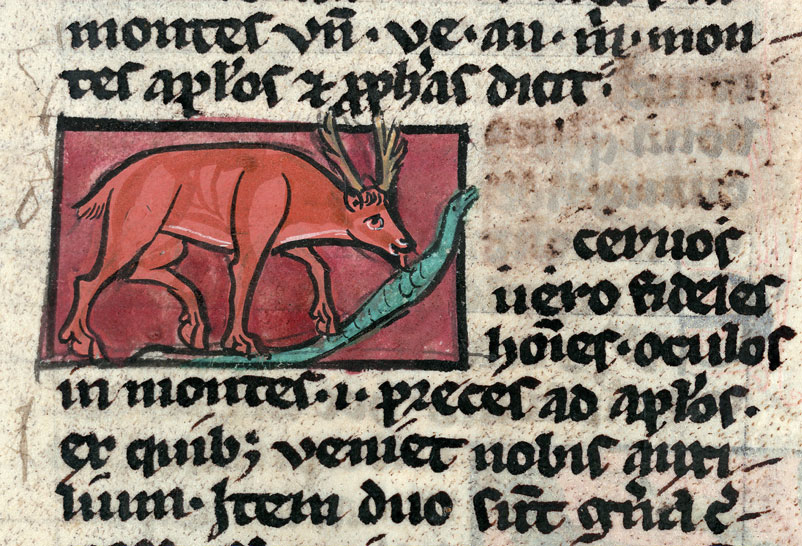 montes vñ · ve · au · m̃ · mon-
tes apl'os ⁊ ꝓph'as dicit ·
ceruos
uero fideles
hoı̃es · oculos
in montes · i · preces ad apl'os ·
ex quib; veniet nobis auxi-
lium · Item duo sũt gña c̃-